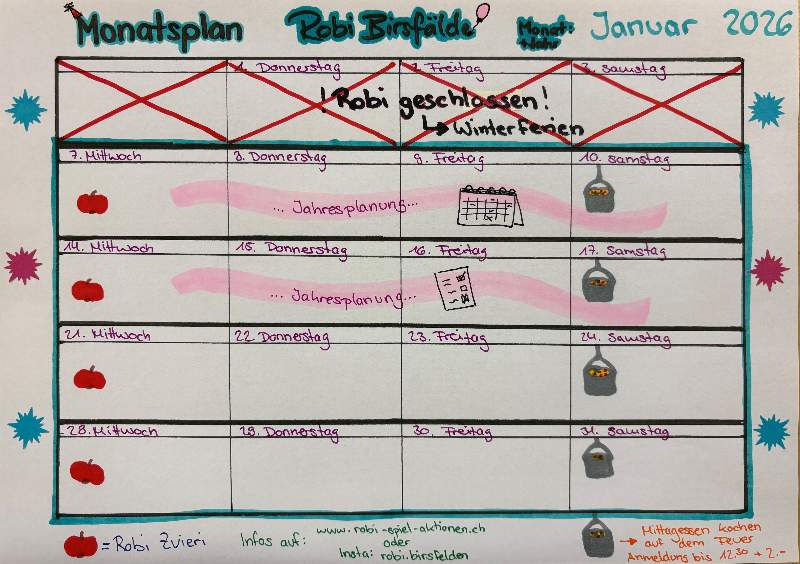 Monatsplan Robi Birsfälde Monat: Januar 2026
+Jahr
1. Donnerstag 2. Freitag 3. Samstag
! Robi geschlossen!
↳ Winterferien
7. Mittwoch 8. Donnerstag 9. Freitag 10. Samstag
... Jahresplanung...
14. Mittwoch 15. Donnerstag 16. Freitag 17. Samstag
... Jahresplanung...
21. Mittwoch 22. Donnerstag 23. Freitag 24. Samstag
28. Mittwoch 29. Donnerstag 30. Freitag 31. Samstag
= Robi Zvieri
Infos auf: www.robi-spiel-aktionen.ch
oder
Insta: robi.birsfelden
→ Mittagessen kochen
auf dem Feuer
Anmeldung bis 12.30 + 2.-